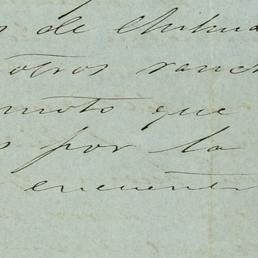 s de Chihua
otros ranch
moto que
s por la
encuentr